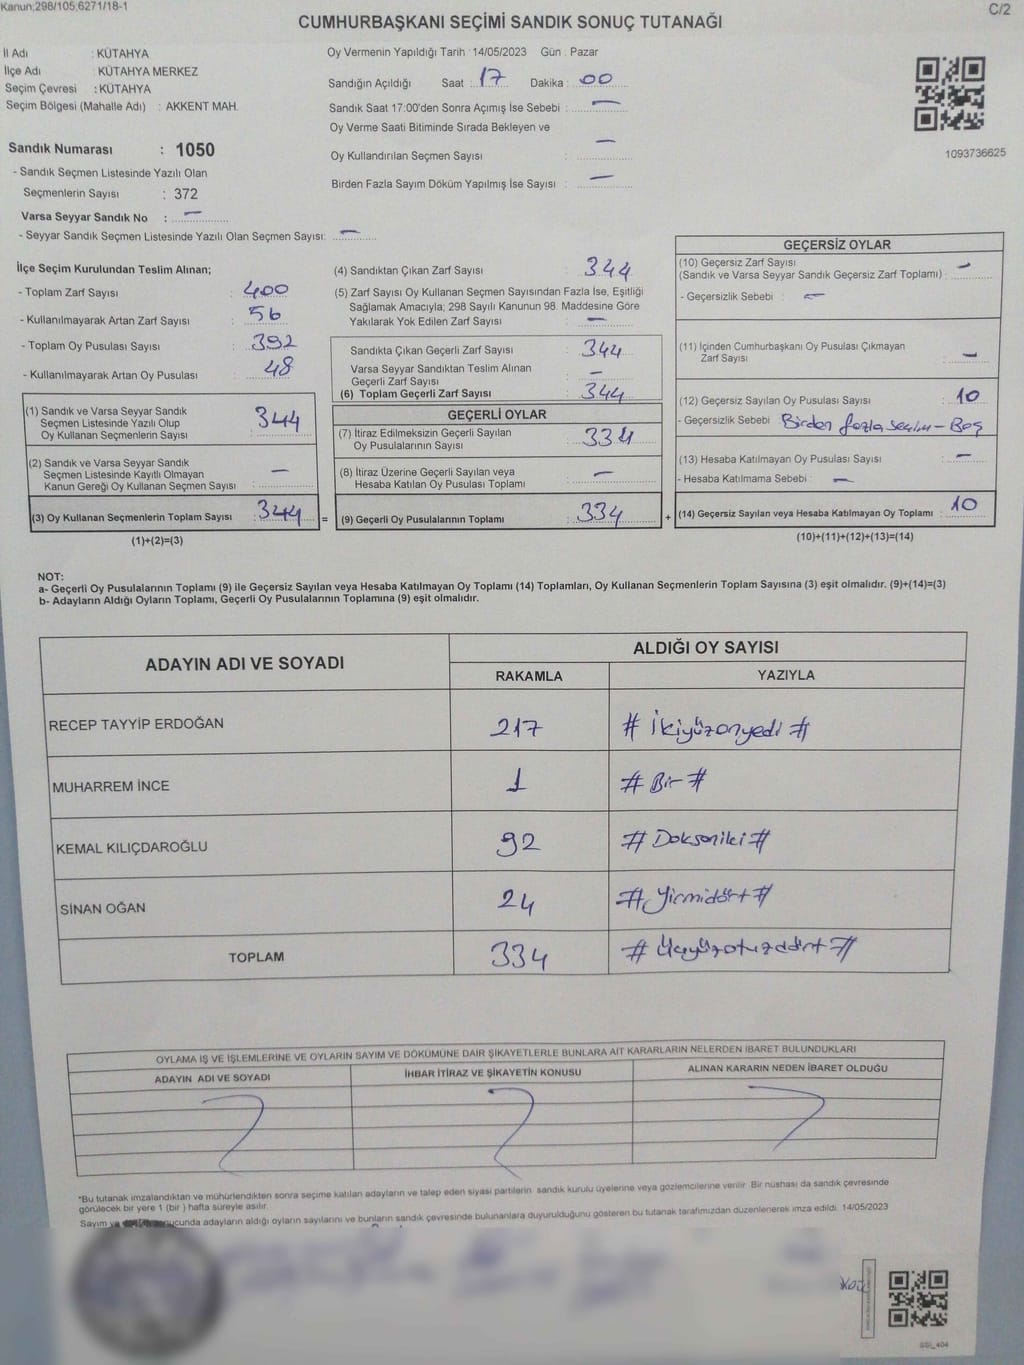 Kanun;298/105;6271/18-1
C/2
CUMHURBAŞKANI SEÇİMİ SANDIK SONUÇ TUTANAĞI
İl Adı : KÜTAHYA
İlçe Adı : KÜTAHYA MERKEZ
Seçim Çevresi : KÜTAHYA
Seçim Bölgesi (Mahalle Adı) : AKKENT MAH.
Oy Vermenin Yapıldığı Tarih : 14/05/2023 Gün : Pazar
Sandığın Açıldığı Saat : 17 Dakika : 00
Sandık Saat 17:00'den Sonra Açımış İse Sebebi : —
Oy Verme Saati Bitiminde Sırada Bekleyen ve
Oy Kullandırılan Seçmen Sayısı : —
Birden Fazla Sayım Döküm Yapılmış İse Sayısı : —
1093736625
Sandık Numarası : 1050
- Sandık Seçmen Listesinde Yazılı Olan
Seçmenlerin Sayısı : 372
Varsa Seyyar Sandık No : —
- Seyyar Sandık Seçmen Listesinde Yazılı Olan Seçmen Sayısı: —
İlçe Seçim Kurulundan Teslim Alınan;
- Toplam Zarf Sayısı : 400
- Kullanılmayarak Artan Zarf Sayısı : 56
- Toplam Oy Pusulası Sayısı : 392
- Kullanılmayarak Artan Oy Pusulası : 48
(1) Sandık ve Varsa Seyyar Sandık
Seçmen Listesinde Yazılı Olup
Oy Kullanan Seçmenlerin Sayısı : 344
(2) Sandık ve Varsa Seyyar Sandık
Seçmen Listesinde Kayıtlı Olmayan
Kanun Gereği Oy Kullanan Seçmen Sayısı : —
(3) Oy Kullanan Seçmenlerin Toplam Sayısı : 344
(1)+(2)=(3)
(4) Sandıktan Çıkan Zarf Sayısı : 344
(5) Zarf Sayısı Oy Kullanan Seçmen Sayısından Fazla İse, Eşitliği
Sağlamak Amacıyla; 298 Sayılı Kanunun 98. Maddesine Göre
Yakılarak Yok Edilen Zarf Sayısı : —
Sandıkta Çıkan Geçerli Zarf Sayısı : 344
Varsa Seyyar Sandıktan Teslim Alınan
Geçerli Zarf Sayısı : —
(6) Toplam Geçerli Zarf Sayısı : 344
GEÇERLİ OYLAR
(7) İtiraz Edilmeksizin Geçerli Sayılan
Oy Pusulalarının Sayısı : 334
(8) İtiraz Üzerine Geçerli Sayılan veya
Hesaba Katılan Oy Pusulası Toplamı : —
= (9) Geçerli Oy Pusulalarının Toplamı : 334 +
GEÇERSİZ OYLAR
(10) Geçersiz Zarf Sayısı
(Sandık ve Varsa Seyyar Sandık Geçersiz Zarf Toplamı) : —
- Geçersizlik Sebebi : —
(11) İçinden Cumhurbaşkanı Oy Pusulası Çıkmayan
Zarf Sayısı : —
(12) Geçersiz Sayılan Oy Pusulası Sayısı : 10
- Geçersizlik Sebebi : Birden fazla seçim - Boş
(13) Hesaba Katılmayan Oy Pusulası Sayısı : —
- Hesaba Katılmama Sebebi : —
(14) Geçersiz Sayılan veya Hesaba Katılmayan Oy Toplamı : 10
(10)+(11)+(12)+(13)=(14)
NOT:
a- Geçerli Oy Pusulalarının Toplamı (9) ile Geçersiz Sayılan veya Hesaba Katılmayan Oy Toplamı (14) Toplamları, Oy Kullanan Seçmenlerin Toplam Sayısına (3) eşit olmalıdır. (9)+(14)=(3)
b- Adayların Aldığı Oyların Toplamı, Geçerli Oy Pusulalarının Toplamına (9) eşit olmalıdır.
ADAYIN ADI VE SOYADI ALDIĞI OY SAYISI
RAKAMLA YAZIYLA
RECEP TAYYİP ERDOĞAN 217 # İkiyüzonyedi #
MUHARREM İNCE 1 # Bir #
KEMAL KILIÇDAROĞLU 92 # Doksaniki #
SİNAN OĞAN 24 # Yirmidört #
TOPLAM 334 # Üçyüzotuzdört #
OYLAMA İŞ VE İŞLEMLERİNE VE OYLARIN SAYIM VE DÖKÜMÜNE DAİR ŞİKAYETLERLE BUNLARA AİT KARARLARIN NELERDEN İBARET BULUNDUKLARI
ADAYIN ADI VE SOYADI İHBAR İTİRAZ VE ŞİKAYETİN KONUSU ALINAN KARARIN NEDEN İBARET OLDUĞU
*Bu tutanak imzalandıktan ve mühürlendikten sonra seçime katılan adayların ve talep eden siyasi partilerin sandık kurulu üyelerine veya gözlemcilerine verilir. Bir nüshası da sandık çevresinde
görülecek bir yere 1 (bir) hafta süreyle asılır.
Sayım ve sonucunda adayların aldığı oyların sayılarını ve bunların sandık çevresinde bulunanlara duyurulduğunu gösteren bu tutanak tarafımızdan düzenlenerek imza edildi. 14/05/2023